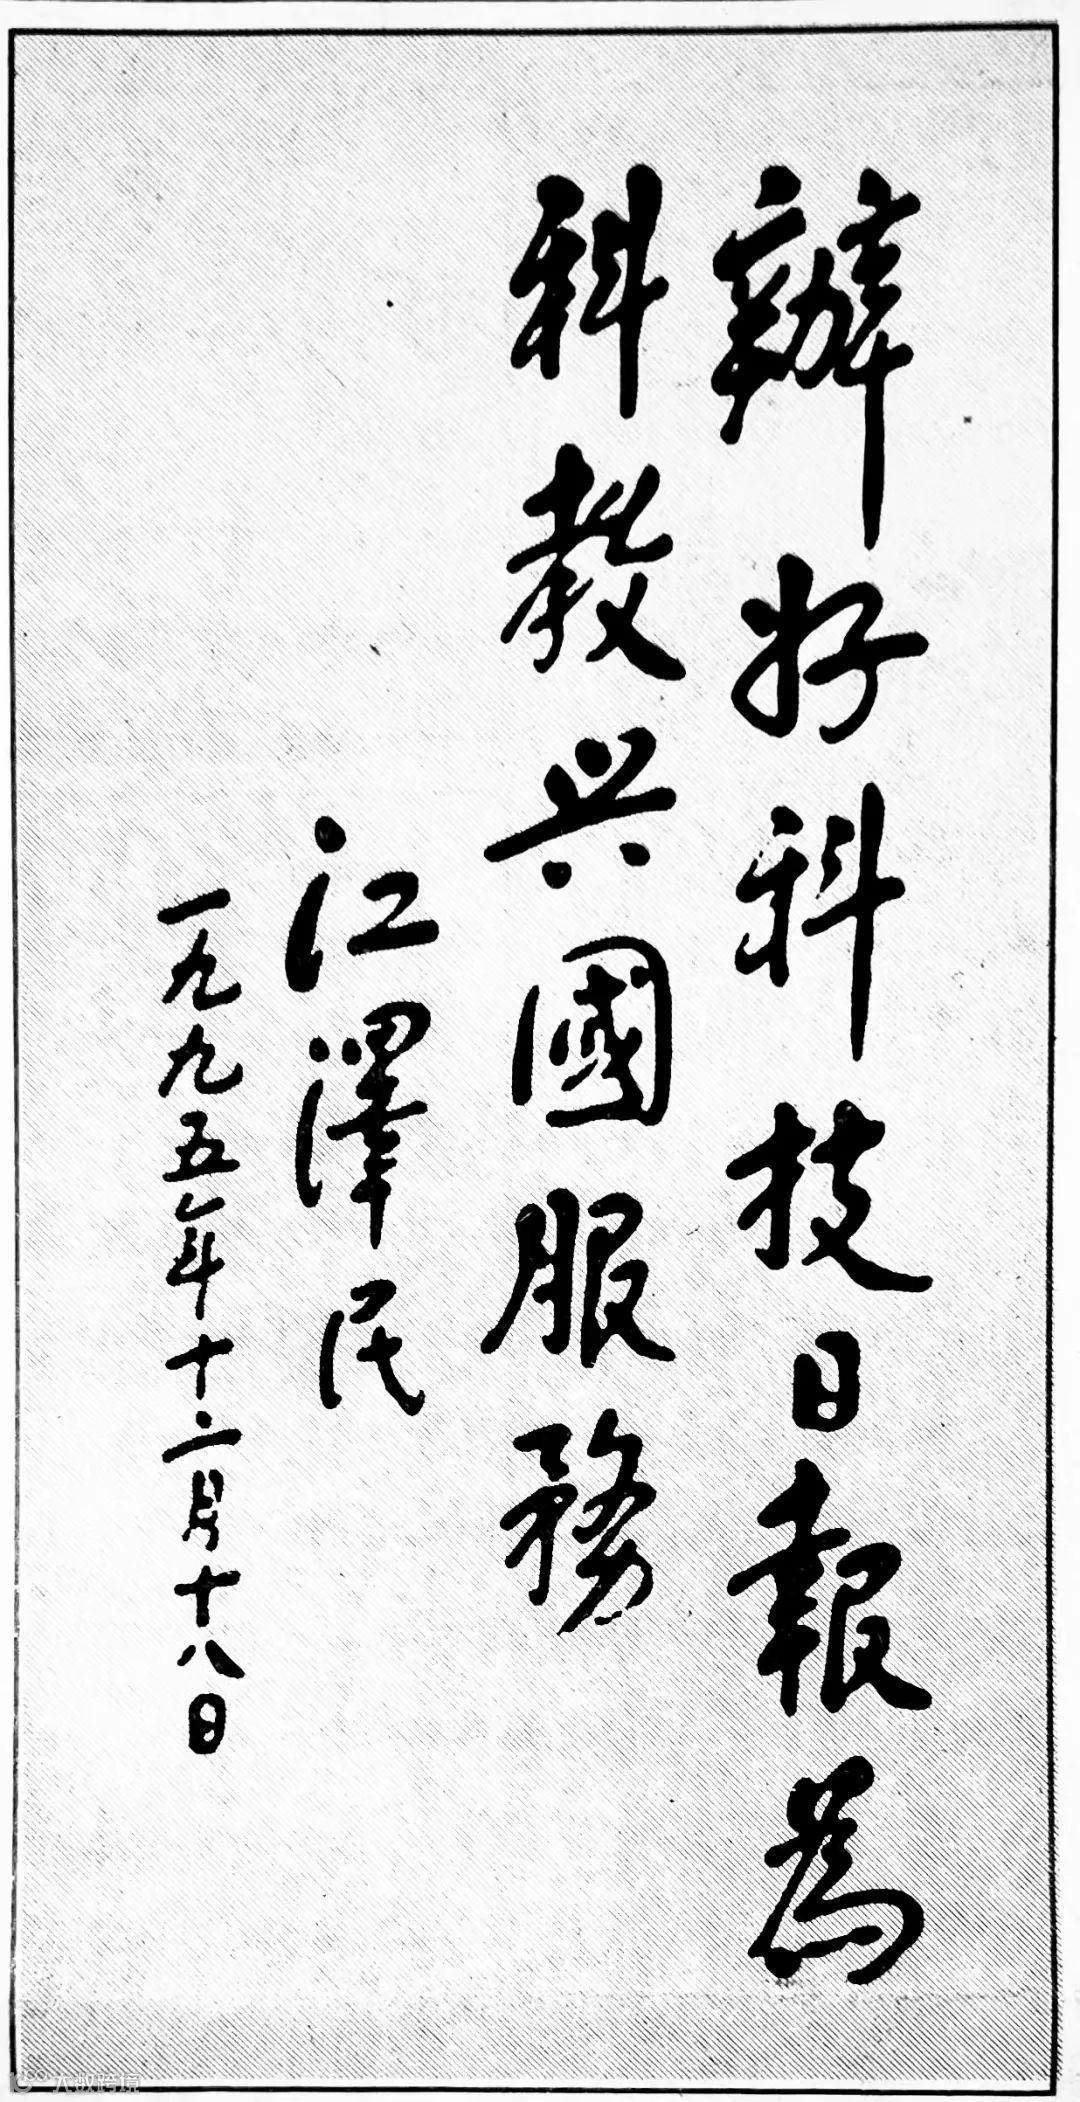 辦好科技日報爲
科教兴國服務
江澤民
一九九五年十二月十八日
大数跨境